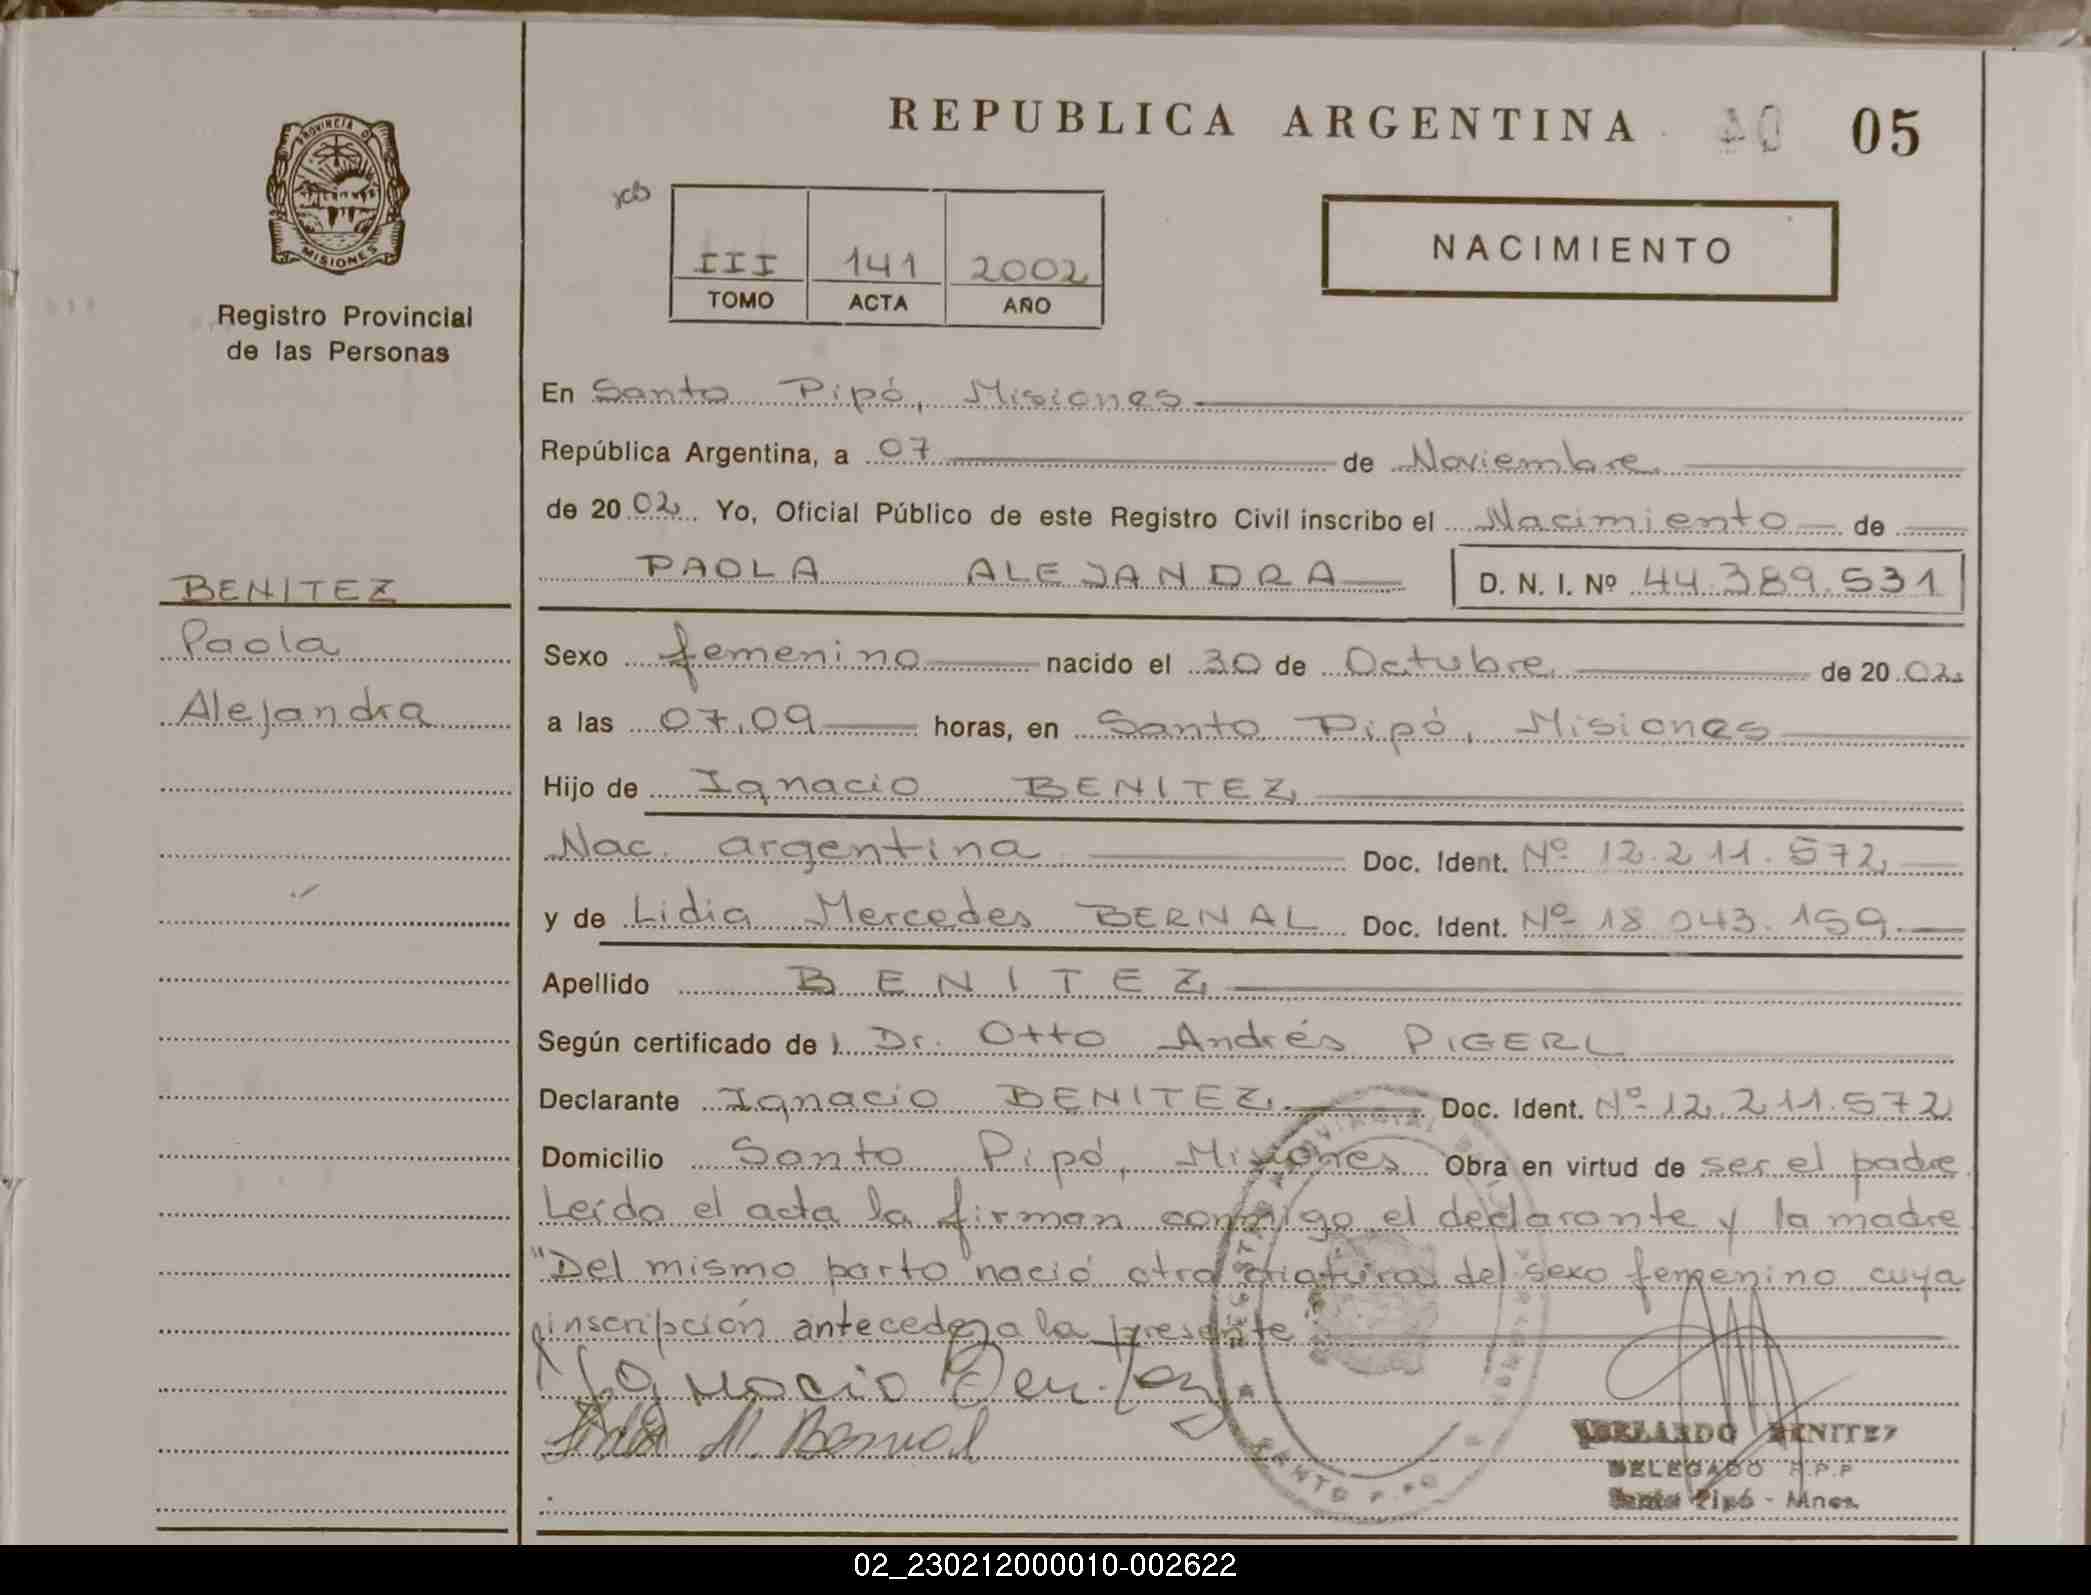 REPUBLICA ARGENTINA 05
PROVINCIA DE MISIONES
Registro Provincial
de las Personas
III 141 2002
TOMO ACTA AÑO
NACIMIENTO
En Santo Pipó, Misiones
República Argentina, a 07 de Noviembre
de 2002 Yo, Oficial Público de este Registro Civil inscribo el Nacimiento de
PAOLA ALEJANDRA D. N. I. Nº 44.389.531
BENITEZ
Paola
Alejandra
Sexo femenino nacido el 30 de Octubre de 2002
a las 07,09 horas, en Santo Pipó, Misiones
Hijo de Ignacio BENITEZ
Nac. argentina Doc. Ident. Nº 12.211.572
y de Lidia Mercedes BERNAL Doc. Ident. Nº 18.043.159
Apellido BENITEZ
Según certificado de l Dr. Otto Andrés PIGERL
Declarante Ignacio BENITEZ Doc. Ident. Nº 12.211.572
Domicilio Santo Pipó, Misiones Obra en virtud de ser el padre
Leída el acta la firman conmigo el declarante y la madre
"Del mismo parto nació otra criatura del sexo femenino cuya
inscripción antecede a la presente
Ignacio Benitez
Lidia M. Bernal
ABELARDO BENITEZ
DELEGADO R.P.P
Santo Pipó - Mnes.
02_230212000010-002622